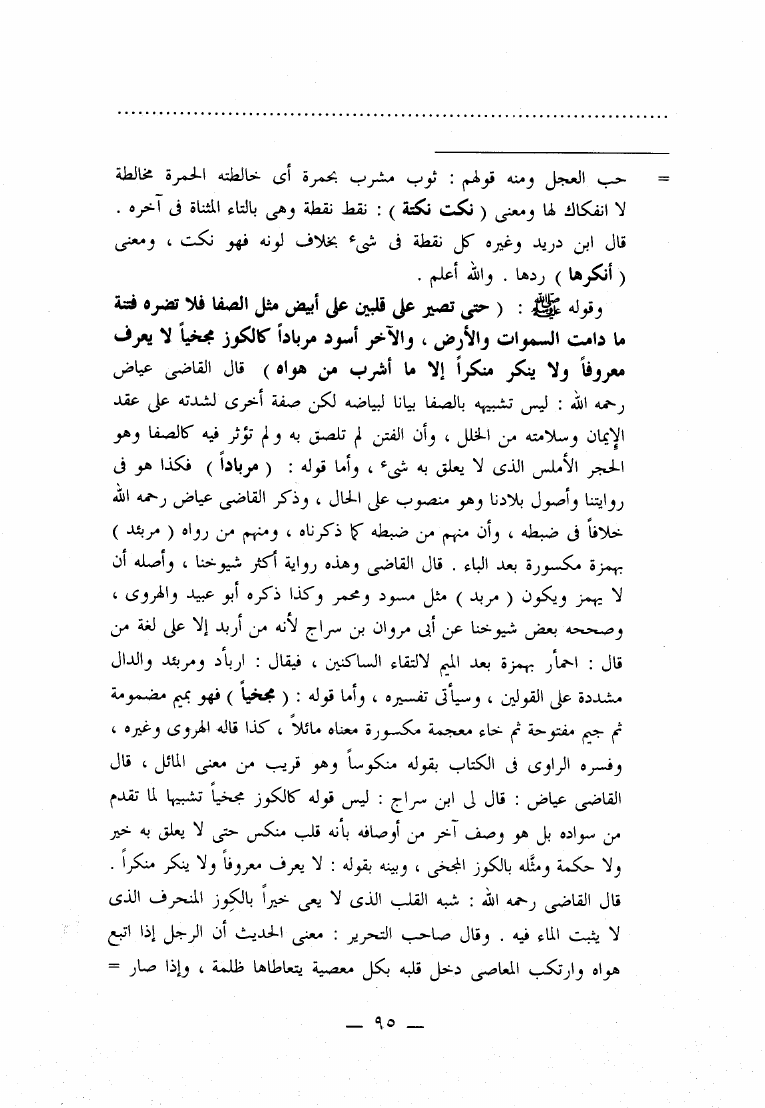 ................................................................................
= حب العجل ومنه قولهم : ثوب مشرب بحمرة أى خالطته الحمرة مخالطة
لا انفكاك لها ومعنى ( نكت نكتة ) : نقط نقطة وهى بالتاء المثناة فى آخره .
قال ابن دريد وغيره كل نقطة فى شىء بخلاف لونه فهو نكت ، ومعنى
( أنكرها ) ردها . والله أعلم .
وقوله ﷺ : ( حتى تصير على قلبين على أبيض مثل الصفا فلا تضره فتنة
ما دامت السموات والأرض ، والآخر أسود مرباداً كالكوز مجخياً لا يعرف
معروفاً ولا ينكر منكراً إلا ما أشرب من هواه ) قال القاضى عياض
رحمه الله : ليس تشبيهه بالصفا بيانا لبياضه لكن صفة أخرى لشدته على عقد
الإيمان وسلامته من الخلل ، وأن الفتن لم تلصق به ولم تؤثر فيه كالصفا وهو
الحجر الأملس الذى لا يعلق به شىء ، وأما قوله : ( مرباداً ) فكذا هو فى
روايتنا وأصول بلادنا وهو منصوب على الحال ، وذكر القاضى عياض رحمه الله
خلافاً فى ضبطه ، وأن منهم من ضبطه كما ذكرناه ، ومنهم من رواه ( مربئد )
بهمزة مكسورة بعد الباء . قال القاضى وهذه رواية أكثر شيوخنا ، وأصله أن
لا يهمز ويكون ( مربد ) مثل مسود ومحمر وكذا ذكره أبو عبيد والهروى ،
وصححه بعض شيوخنا عن أبى مروان بن سراج لأنه من أربد إلا على لغة من
قال : احمأر بهمزة بعد الميم لالتقاء الساكنين ، فيقال : اربأد ومربئد والدال
مشددة على القولين ، وسيأتى تفسيره ، وأما قوله : ( مجخياً ) فهو بميم مضمومة
ثم جيم مفتوحة ثم خاء معجمة مكسورة معناه مائلاً ، كذا قاله الهروى وغيره ،
وفسره الراوى فى الكتاب بقوله منكوساً وهو قريب من معنى المائل ، قال
القاضى عياض : قال لى ابن سراج : ليس قوله كالكوز مجخياً تشبيها لما تقدم
من سواده بل هو وصف آخر من أوصافه بأنه قلب منكس حتى لا يعلق به خير
ولا حكمة ومثَّله بالكوز المجخى ، وبينه بقوله : لا يعرف معروفاً ولا ينكر منكراً .
قال القاضى رحمه الله : شبه القلب الذى لا يعى خيراً بالكوز المنحرف الذى
لا يثبت الماء فيه . وقال صاحب التحرير : معنى الحديث أن الرجل إذا اتبع
هواه وارتكب المعاصى دخل قلبه بكل معصية يتعاطاها ظلمة ، وإذا صار =
— ٩٥ —